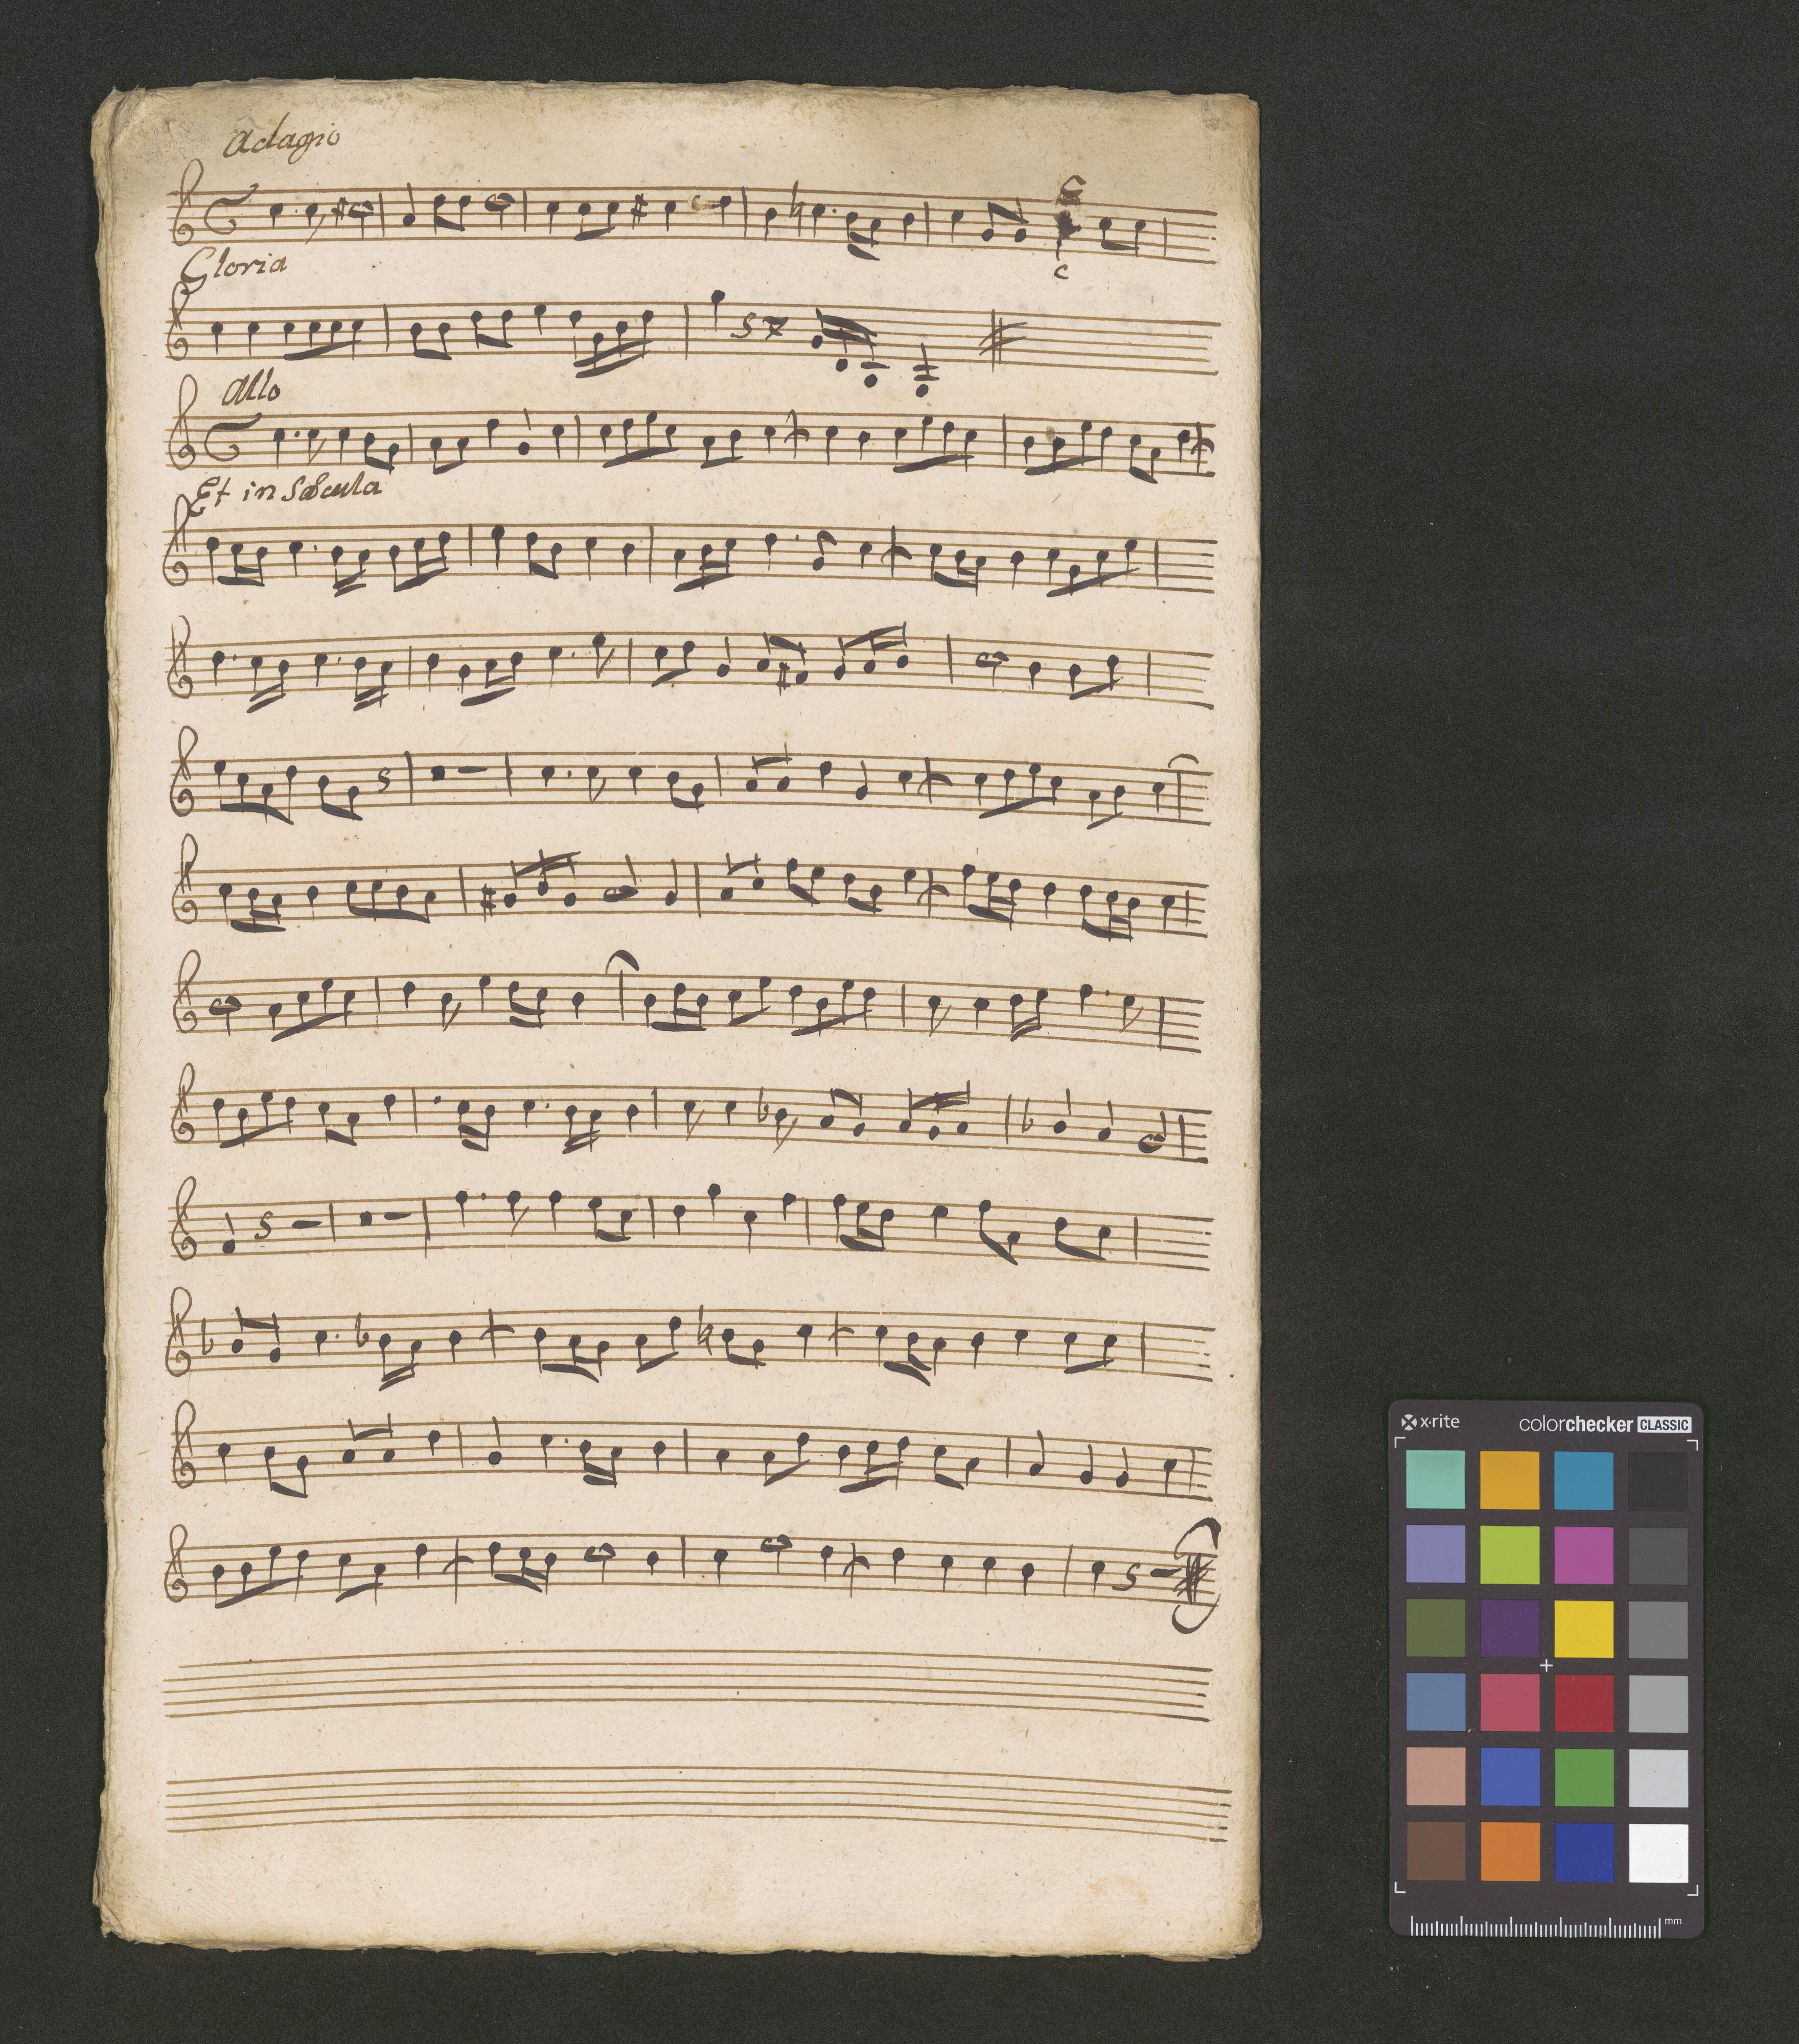 Adagio
Gloria
c
Allo
Et in Sæcula
x-rite
colorchecker CLASSIC
mm